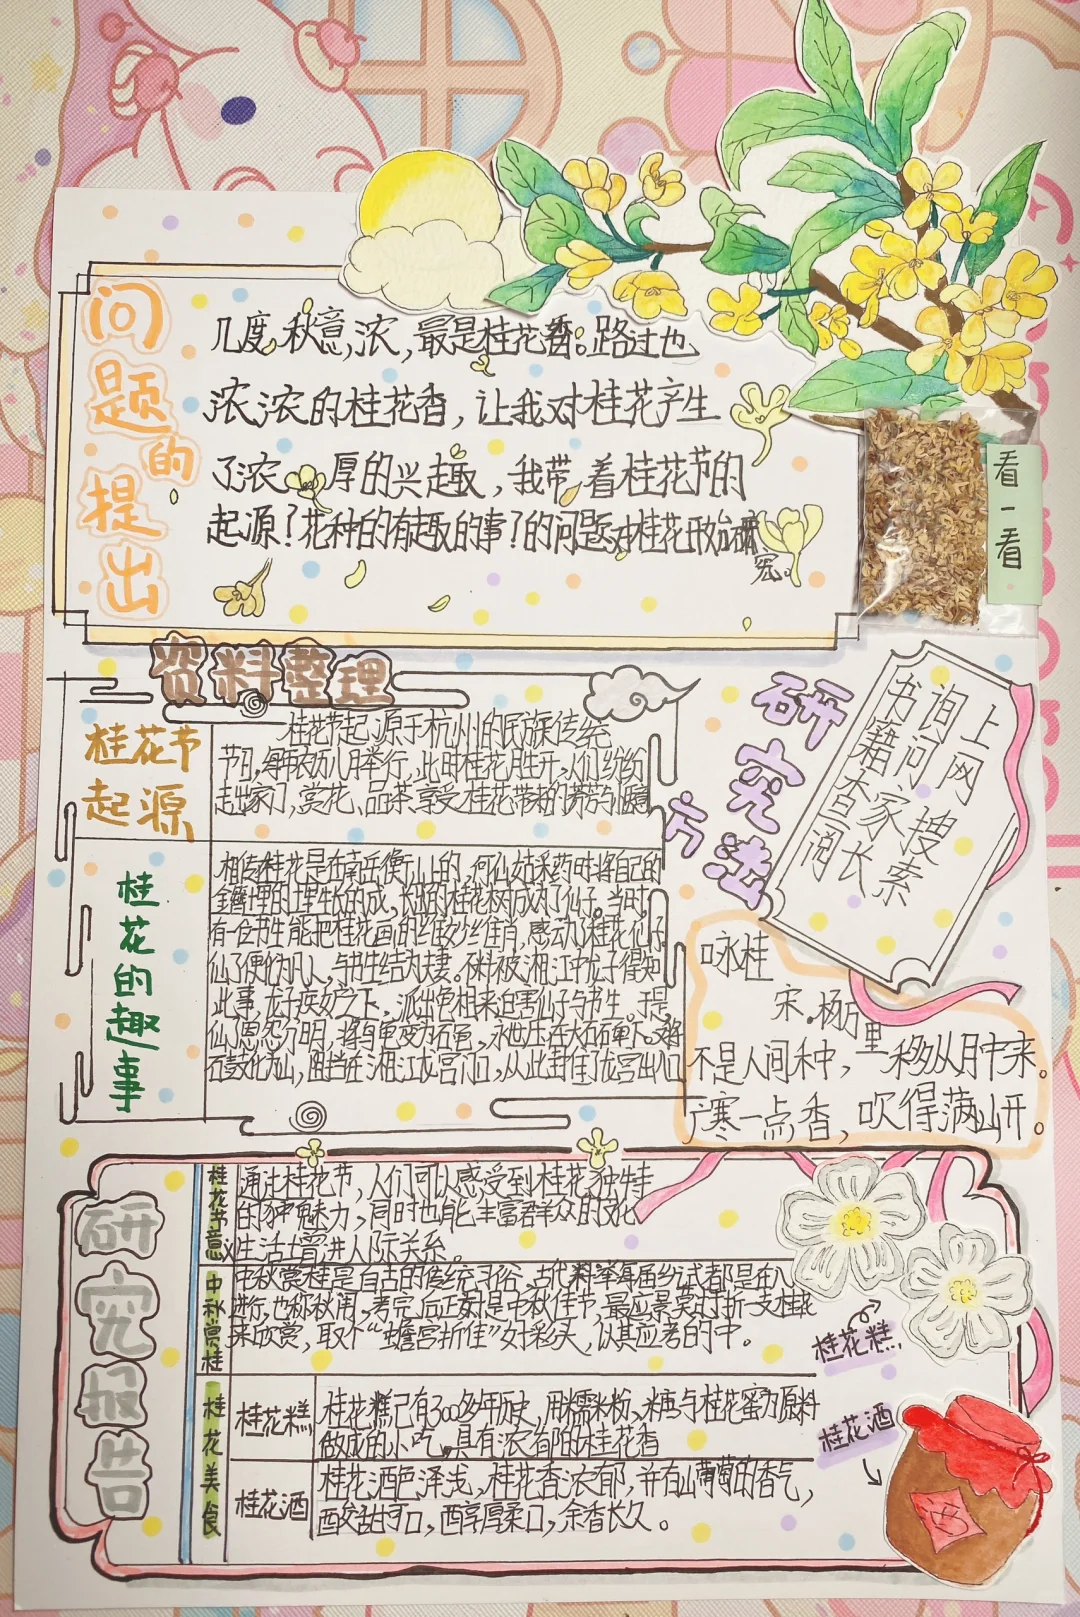 问题的提出
几度秋意,浓,最是桂花香。路过也
浓浓的桂花香,让我对桂花产生
了浓厚的兴趣,我带着桂花节的
起源?花种的有趣的事?的问题对桂花开始研
究。
看一看
资料整理
桂花节起源
桂花节起源于杭州的民族传统
节日,每年农历八月举行,此时桂花盛开,人们纷纷
走出家门,赏花、品茶、享受桂花带来的芳芳与
桂花的趣事
相传桂花是在南岳衡山的,何仙姑采药时将自己的
金簪埋的土里生长的成,长出的桂花树成为了仙子。当时,
有一位书生能把桂花画的维妙维肖,感动了桂花仙子
仙子便化为凡人,与书生结为夫妻。不料被湘江中龙子得知
此事,龙子疾妒之下,派出龟相来迫害仙子与书生。于是
仙恩怨分明,将乌龟变为石龟,永世压在大石
石鼓化为山,阻挡在湘江龙宫门口,从此封住了龙宫出入口
研究方法
上网搜索
询问家长
书籍查阅
咏桂
宋.杨万里
不是人间种,移从月中来。
广寒一点香,吹得满山开。
研究报告
桂花节意义
通过桂花节,人们可以感受到桂花独特
的魅力,同时也能丰富群众的文化
生活增进人际关系。
中秋赏桂
中秋赏桂是自古的传统习俗,古代科举每届乡试都是在八
进行,也称秋闱,考完后正如是中秋佳节,最应景莫打折一支桂花
来欣赏,取个“蟾宫折佳”好彩头,以其应考的中。
桂花美食
桂花糕
桂花糕已有300多年历史,用糯米粉、米唐与桂花蜜为原料
做成的小吃,具有浓郁的桂花香
桂花酒
桂花酒色泽浅,桂花香浓郁,并有山葡萄的香气,
酸甜可口,醇厚柔口,余香长久。
桂花糕
桂花酒